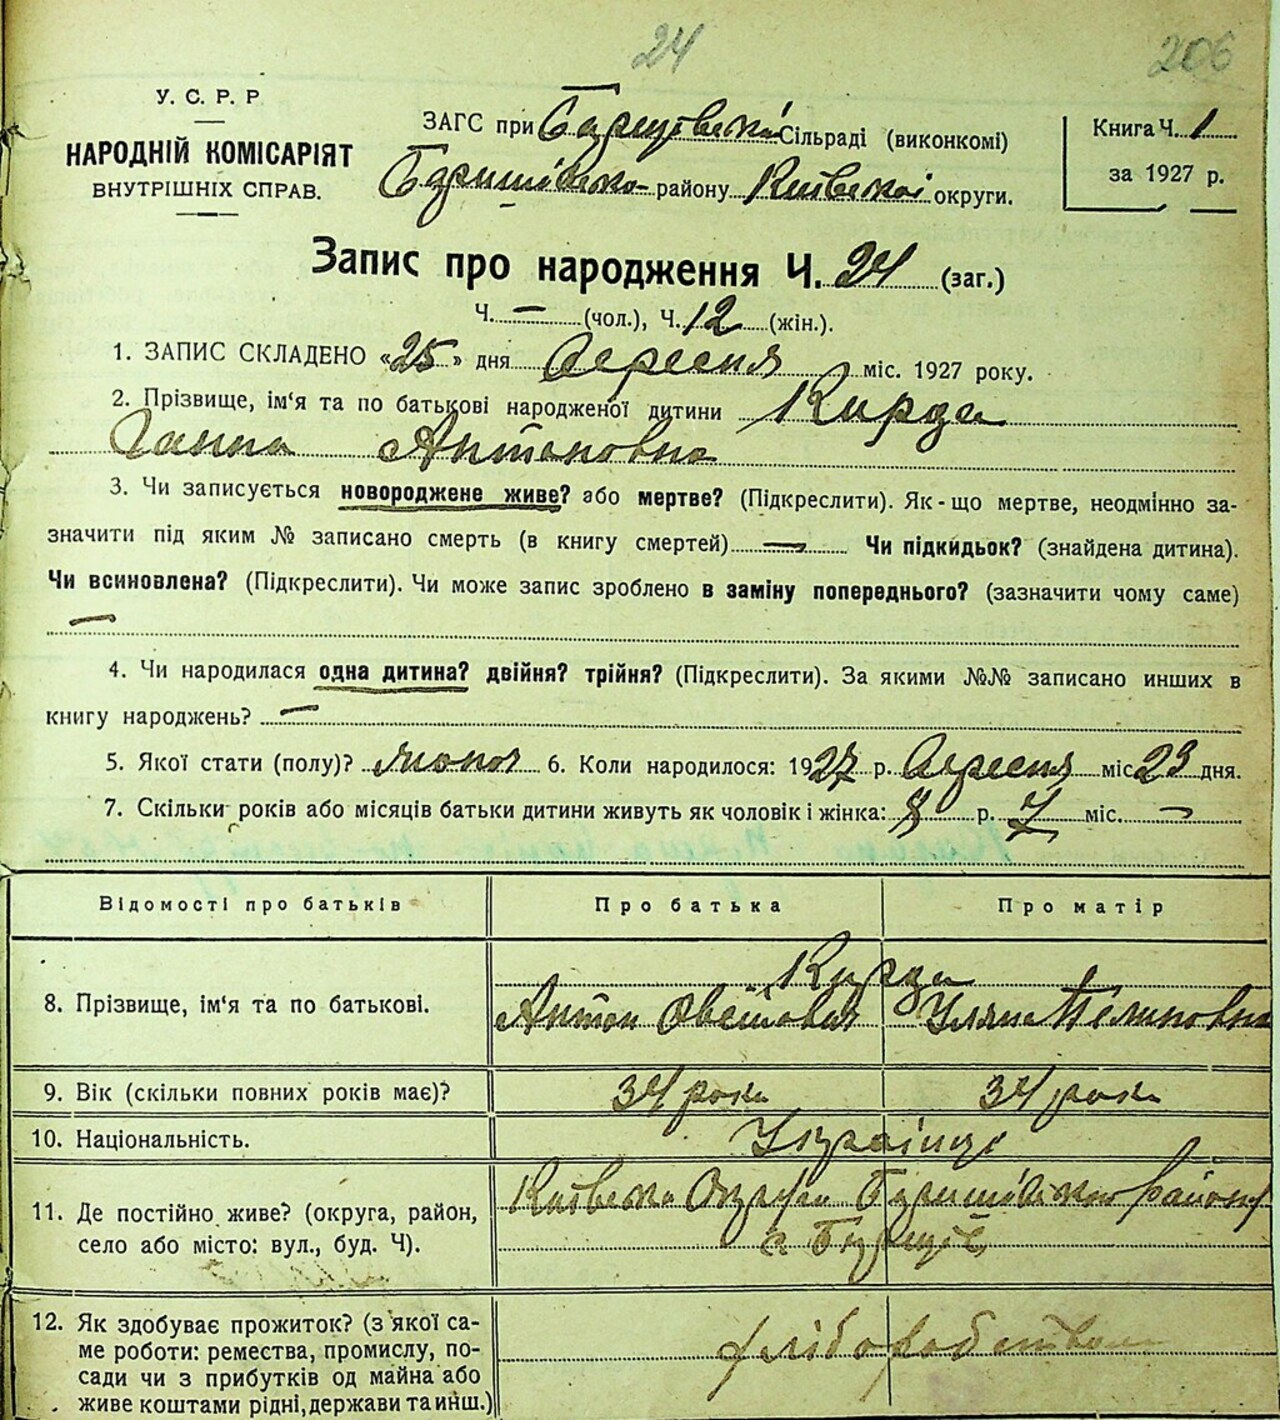 24
206
У. С. Р. Р
НАРОДНІЙ КОМІСАРІЯТ
ВНУТРІШНІХ СПРАВ.
ЗАГС при Борщівській Сільраді (виконкомі)
Баришівсько району Київської округи.
Книга Ч. 1
за 1927 р.
Запис про народження Ч. 24 (заг.)
Ч. — (чол.), Ч. 12 (жін.).
1. ЗАПИС СКЛАДЕНО «25» дня Вересня міс. 1927 року.
2. Прізвище, ім'я та по батькові народженої дитини Кирда
Ганна Антоновна
3. Чи записується новороджене живе? або мертве? (Підкреслити). Як-що мертве, неодмінно за-
значити під яким № записано смерть (в книгу смертей) — Чи підкидьок? (знайдена дитина).
Чи всиновлена? (Підкреслити). Чи може запис зроблено в заміну попереднього? (зазначити чому саме)
—
4. Чи народилася одна дитина? двійня? трійня? (Підкреслити). За якими №№ записано инших в
книгу народжень? —
5. Якої стати (полу)? жіночої 6. Коли народилося: 1927 р. Вересня міс 23 дня.
7. Скільки років або місяців батьки дитини живуть як чоловік і жінка: р. 7 міс. —
Відомості про батьків
Про батька
Про матір
8. Прізвище, ім'я та по батькові.
Кирда
Антон
Уляна
9. Вік (скільки повних років має)?
34 роки
34 роки
10. Національність.
Українці
11. Де постійно живе? (округа, район,
село або місто: вул., буд. Ч).
Київська Округа Баришівського району
с Борщів
12. Як здобуває прожиток? (з якої са-
ме роботи: ремества, промислу, по-
сади чи з прибутків од майна або
живе коштами рідні, держави та инш.)
хліборобством